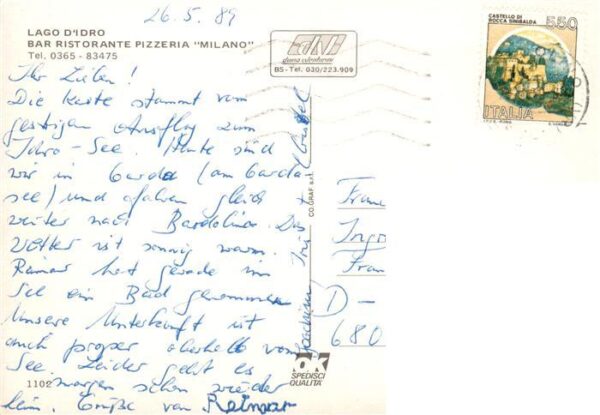 26.5.89
LAGO D'IDRO
BAR RISTORANTE PIZZERIA "MILANO"
Tel. 0365 - 83475
BS-Tel. 030/223.909
CASTELLO DI
ROCCA SINIBALDA
550
ITALIA
I.P.Z.S. - ROMA
Ihr Lieben!
Die Karte stammt vom
gestrigen Ausflug zum
Idro-See. Heute sind
wir in Garda (am Garda
see) und fahren gleich
weiter nach Bardolino. Das
Wetter ist sonnig warm.
Reimar hat gerade im
See ein Bad genommen
Unsere Unterkunft ist
auch proper oberhalb vom
See. Leider geht es
morgen schon wieder
heim. Grüße von Reimar
Joachim
CO.GRAF s.r.l.
D-
680
ok
SPEDISCI
QUALITÀ
1102